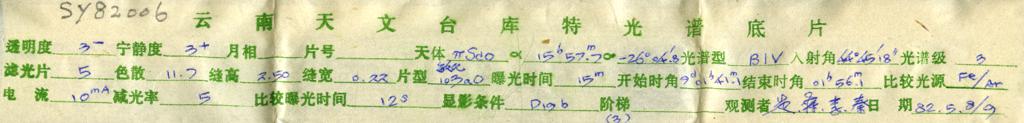 SY82006
云南天文台库特光谱底片
透明度 3⁻ 宁静度 3⁺ 月相 片号 天体 πSco α 15ʰ57.ᵐ7 δ -26°04'.8 光谱型 B1V 入射角 66°45'18" 光谱级 3
滤光片 5 色散 11.7 缝高 2.50 缝宽 0.22 片型 103aO 曝光时间 15ᵐ 开始时角 01ʰ41ᵐ 结束时角 01ʰ56ᵐ 比较光源 Fe/Ar
电流 10ᵐᴬ 减光率 5 比较曝光时间 12ˢ 显影条件 D19b 阶梯 (3) 观测者 李.秦 日期 82.5.8/9